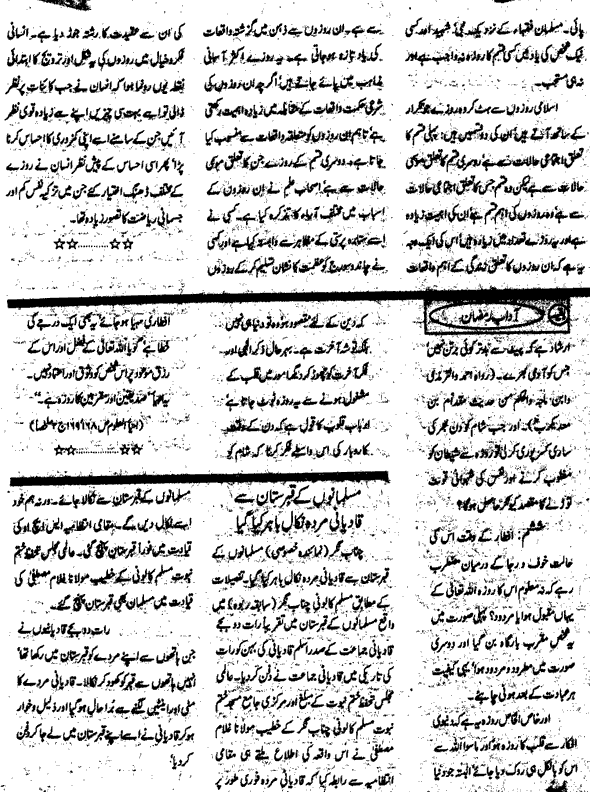 پائی۔ مسلمان فقہاء کے نزدیک نبی، شہید اور کسی
نیک شخص کی یاد میں کسی قسم کا روزہ نہ واجب ہے اور
نہ ہی مستحب۔
اسلامی روزوں سے ہٹ کر وہ روزے جو تکرار
کے ساتھ آتے ہیں ان کی دو قسمیں ہیں: پہلی قسم کا
تعلق اجتماعی حالات سے ہے دوسری قسم کا تعلق موسمی
حالات سے ہے لیکن وہ قسم جس کا تعلق اجتماعی حالات
سے ہے وہ روزوں کی اہم قسم ہے ان کی اہمیت زیادہ
ہے اور یہ روزے تعداد میں زیادہ ہیں اس کی ایک وجہ
یہ ہے کہ ان روزوں کا تعلق زندگی کے اہم واقعات
سے ہے۔ ان روزوں سے ذہن میں گزشتہ واقعات
کی یاد تازہ ہوجاتی ہے۔ یہ روزے اکثر آسمانی
مذاہب میں پائے جاتے ہیں، اگرچہ ان روزوں کی
شرعی حکمت واقعات کے مقابلہ میں زیادہ اہمیت رکھتی
ہے تاہم ان روزوں کو متعلقہ واقعات سے منسوب کیا
جاتا ہے۔ دوسری قسم کے روزے جن کا تعلق موسمی
حالات سے ہے اصحاب علم نے ان روزوں کے
اسباب میں مختلف آراء کا تذکرہ کیا ہے۔ کسی نے
اسے ستارہ پرستی کے مظاہر سے وابستہ کیا ہے اور کسی
نے چاند و سورج کو عظمت کا نشان تسلیم کرکے روزوں
کی ان سے عقیدت کا رشتہ جوڑ دیا ہے۔ انسانی
فکر و خیال میں روزوں کی یہ شکل اور ترویج کا ابتدائی
نقطہ یوں رونما ہوا کہ انسان نے جب کائنات پر نظر
ڈالی تو اسے بہت سی چیزیں اپنے سے زیادہ قوی نظر
آئیں جن کے سامنے اسے اپنی کمزوری کا احساس کرنا
پڑا، پھر اسی احساس کے پیش نظر انسان نے روزے
کے مختلف ڈھنگ اختیار کئے جن میں تزکیہ نفس کم اور
جسمانی ریاضت کا تصور زیادہ تھا۔
☆☆..........☆☆
آداب رمضان
ارشاد ہے کہ پیٹ سے بدتر کوئی برتن نہیں
جس کو آدمی بھرے۔ (رواہ احمد والترمذی
وابن ماجہ والحاکم من حدیث مقدام بن
معدیکرب): اور جب شام کو دن بھر کی
ساری کسر پوری کرلی تو روزہ سے شیطان کو
مغلوب کرنے اور نفس کی شہوانی قوت
توڑنے کا مقصد کیونکر حاصل ہوگا؟
ششم: افطار کے وقت اس کی
حالت خوف و رجا کے درمیان مضطرب
رہے کہ نہ معلوم اس کا روزہ اللہ تعالیٰ کے
یہاں مقبول ہوا یا مردود؟ پہلی صورت میں
یہ شخص مقرب بارگاہ بن گیا اور دوسری
صورت میں مطرود و مردود ہوا، یہی کیفیت
ہر عبادت کے بعد ہونی چاہئے۔
اور خاص الخاص روزہ یہ ہے کہ دنیوی
افکار سے قلب کا روزہ ہو اور ماسوا اللہ سے
اس کو بالکل ہی روک دیا جائے البتہ جو دنیا
کہ دین کے لئے مقصود ہو وہ تو دنیا ہی نہیں
بلکہ توشہ آخرت ہے۔ بہرحال ذکر الٰہی اور
فکر آخرت کو چھوڑ کر دیگر امور میں قلب کے
مشغول ہونے سے یہ روزہ ٹوٹ جاتا ہے
ارباب قلوب کا قول ہے کہ دن کے وقت
کاروبار کی اس واسطے فکر کرنا کہ شام کو
افطاری مہیا ہو جائے یہ بھی ایک درجے کی
خطا ہے گویا اللہ تعالیٰ کے فضل اور اس کے
رزق موعود پر اس شخص کو وثوق اور اعتماد نہیں۔
یہ انبیاء، صدیقین اور مقربین کا روزہ ہے۔"
(احیاء العلوم ص ۱۶۸، ۱۶۹ ج ۳ ملخصاً)
☆☆..........☆☆
مسلمانوں کے قبرستان سے
قادیانی مردہ نکال باہر کیا گیا
چناب نگر (نمائندہ خصوصی) مسلمانوں کے
قبرستان سے قادیانی مردہ نکال باہر کیا گیا۔ تفصیلات
کے مطابق مسلم کالونی چناب نگر (سابقہ ربوہ) میں
واقع مسلمانوں کے قبرستان میں تقریباً رات دو بجے
قادیانی جماعت کے صدر اسلم قادیانی کی بہن کو رات
کی تاریکی میں قادیانی جماعت نے دفن کردیا۔ عالمی
مجلس تحفظ ختم نبوت کے مبلغ اور مرکزی جامع مسجد ختم
نبوت مسلم کالونی چناب نگر کے خطیب مولانا غلام
مصطفیٰ نے اس واقعہ کی اطلاع ملتے ہی مقامی
انتظامیہ سے رابطہ کیا کہ قادیانی مردہ فوری طور پر
مسلمانوں کے قبرستان سے نکالا جائے۔ ورنہ ہم خود
اسے نکال دیں گے۔ مقامی انتظامیہ ایس ایچ او کی
قیادت میں فوراً قبرستان پہنچ گئی۔ عالمی مجلس تحفظ ختم
نبوت مسلم کالونی کے خطیب مولانا غلام مصطفیٰ کی
قیادت میں مسلمان بھی قبرستان پہنچ گئے۔
رات دو بجے قادیانیوں نے
جن ہاتھوں سے اپنے مردے کو قبرستان میں رکھا تھا
انہیں ہاتھوں سے قبر کو کھود کر نکالا۔ قادیانی مردے کا
مٹی اور اینٹیں لگنے سے برا حال ہوگیا اور ذلیل و خوار
ہوکر قادیانی نے اسے اپنے قبرستان میں لے جاکر دفن
کردیا۔